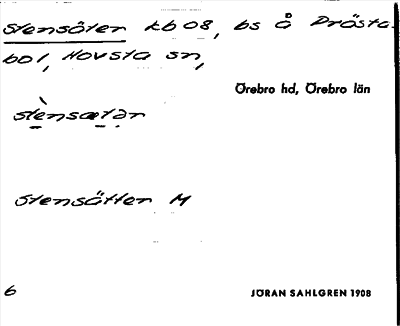 Stensäter kb 08, bs å Drösta-
bo 1, Hovsta sn,
Örebro hd, Örebro län
stènsætər
Stensätter M
6
JÖRAN SAHLGREN 1908